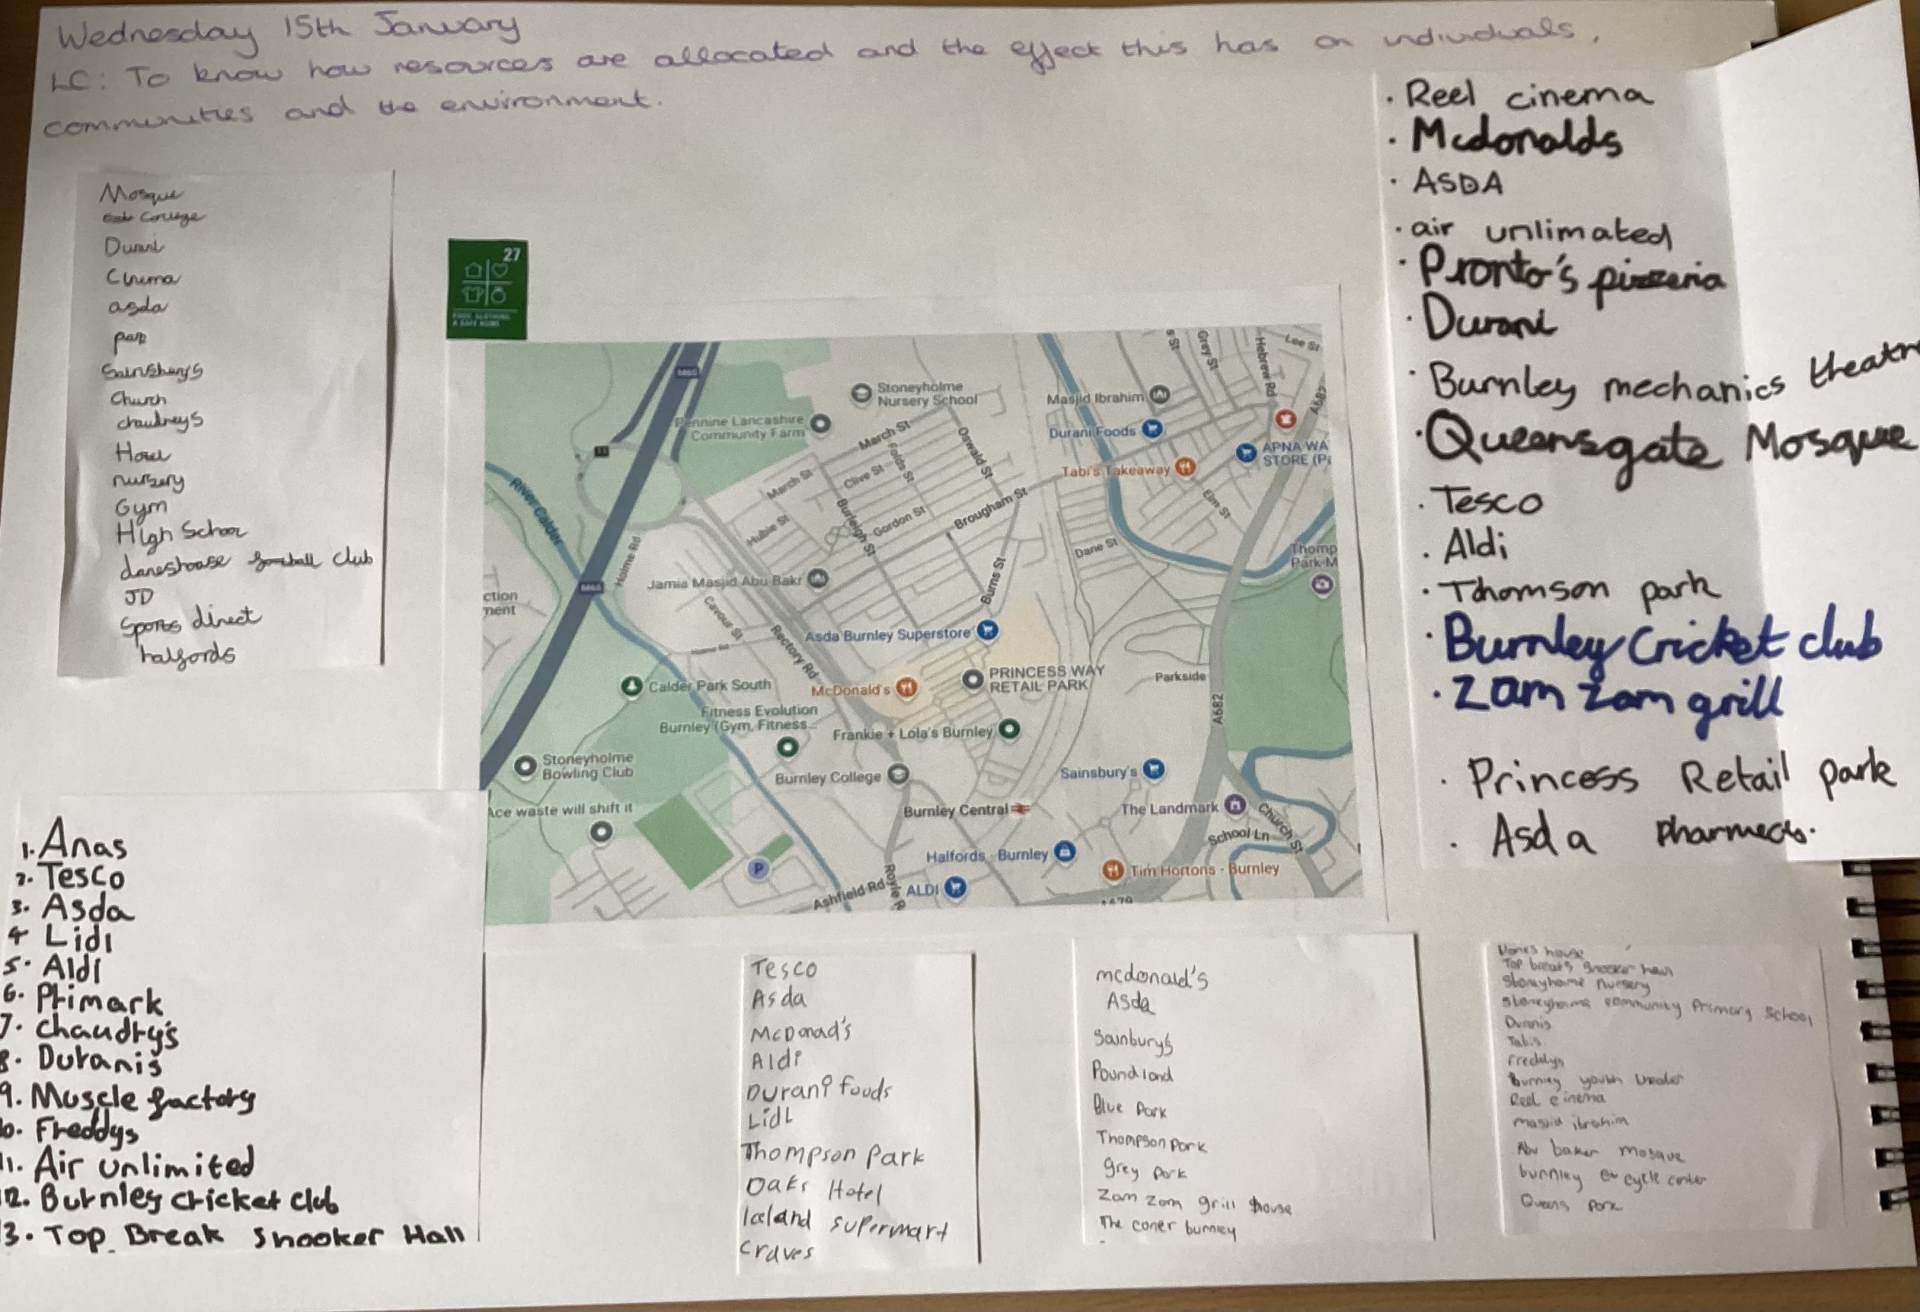 Wednesday 15th January
LC: To know how resources are allocated and the effect this has on individuals,
communities and the environment.
Mosque
College
Durani
Cinema
asda
Sainsbury's
Church
chaudreys
nursery
Gym
High School
daneshouse football club
JD
Sports direct
halfords
27
FOOD, CLOTHING
& SAFE HOME
M65
Stoneyholme
Nursery School
Pennine Lancashire
Community Farm
March St
Folds St
Oswald St
Masjid Ibrahim
Durani Foods
Tabi's Takeaway
s St
Grey St
Hebrew Rd
Lee St
A682
APNA WA
STORE (P
Elm St
River Calder
March St
Clive St
Hubie St
Burleigh St
Gordon St
Brougham St
Dane St
Thomp
Park M
Holme Rd
M65
ction
ment
Jamia Masjid Abu Bakr
Cavour St
Rectory Rd
Burns St
Asda Burnley Superstore
PRINCESS WAY
RETAIL PARK
Parkside
A682
Calder Park South
McDonald's
Fitness Evolution
Burnley (Gym, Fitness...
Frankie + Lola's Burnley
Stoneyholme
Bowling Club
Burnley College
Sainsbury's
Ace waste will shift it
Burnley Central
The Landmark
Church St
School Ln
Halfords - Burnley
P
Tim Hortons - Burnley
Ashfield Rd
Royle R
ALDI
A679
· Reel cinema
· Mcdonalds
· ASDA
· air unlimated
· Pronto's pizzeria
· Durani
· Burnley mechanics theatre
· Queensgate Mosque
· Tesco
· Aldi
· Thomson park
· Burnley Cricket club
· Zam Zam grill
· Princess Retail park
· Asda
1. Anas
2. Tesco
3. Asda
4 Lidl
5. Aldi
6. Primark
7. Chaudry's
8. Duranis
9. Muscle factory
10. Freddys
11. Air unlimited
12. Burnley cricket club
13. Top Break Snooker Hall
Tesco
Asda
McDonad's
Aldi
Durani foods
Lidl
Thompson Park
Oaks Hotel
Iceland supermart
craves
mcdonald's
Asda
Sainbury's
Poundland
Blue Park
Thompson park
grey park
Zam zam grill house
The coner burnley
house
Top breaks snooker haul
Stoneyholme nursery
Stoneyholme community Primary School
Duranis
Tabis
Freddys
Burnley youth
Reel cinema
masjid ibrahim
Abu baker mosque
burnley cycle center
Queens park